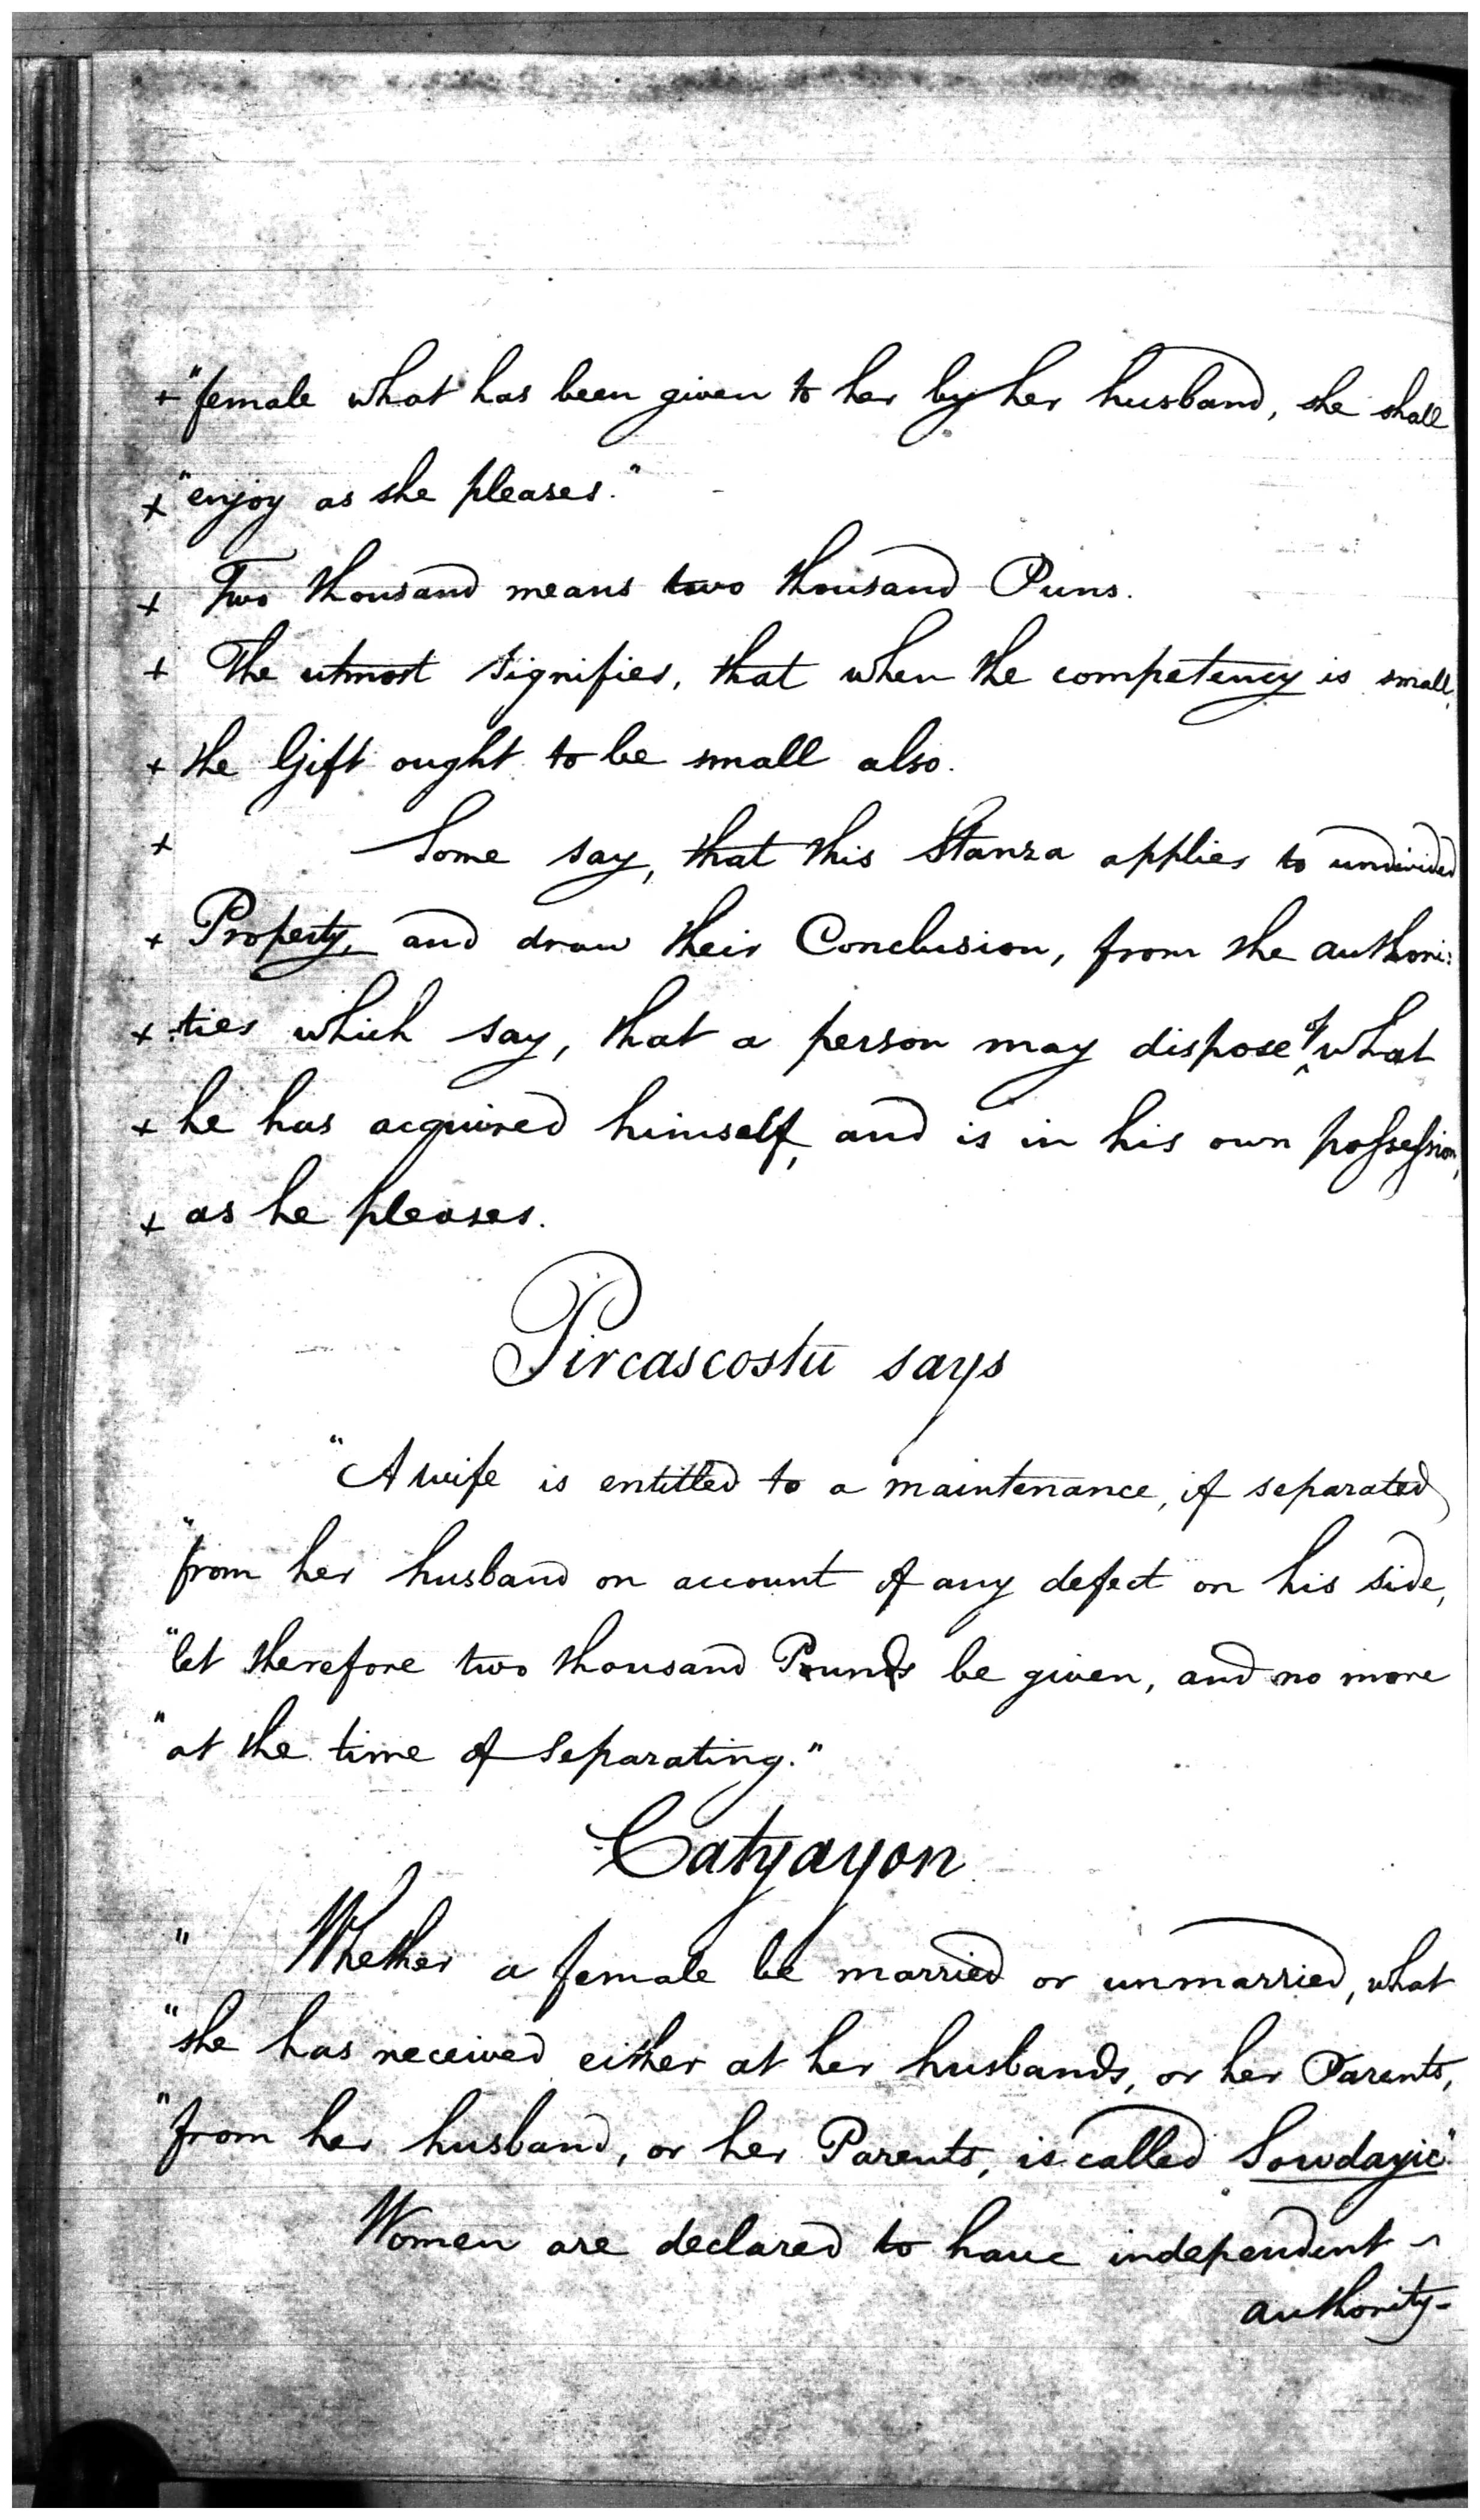 + "female what has been given to her by her husband, she shall
+ "enjoy as she pleases."
+ Two thousand means two thousand Puns.
+ The utmost signifies, that when the competency is small,
+ the Gift ought to be small also.
+ Some say, that this Stanza applies to undivided
+ Property, and draw their Conclusion, from the authori:
+ :ties which say, that a person may dispose ^of what
+ he has acquired himself, and is in his own possession,
+ as he pleases.
Pircascostu says
"A wife is entitled to a maintenance, if separated
"from her husband on account of any defect on his side,
"let therefore two thousand Pounds be given, and no more
"at the time of separating."
Catyayon
" Whether a female be married or unmarried, what
"she has received either at her husbands, or her Parents,
"from her husband, or her Parents, is called Sowdayic"
Women are declared to have independent
authority-